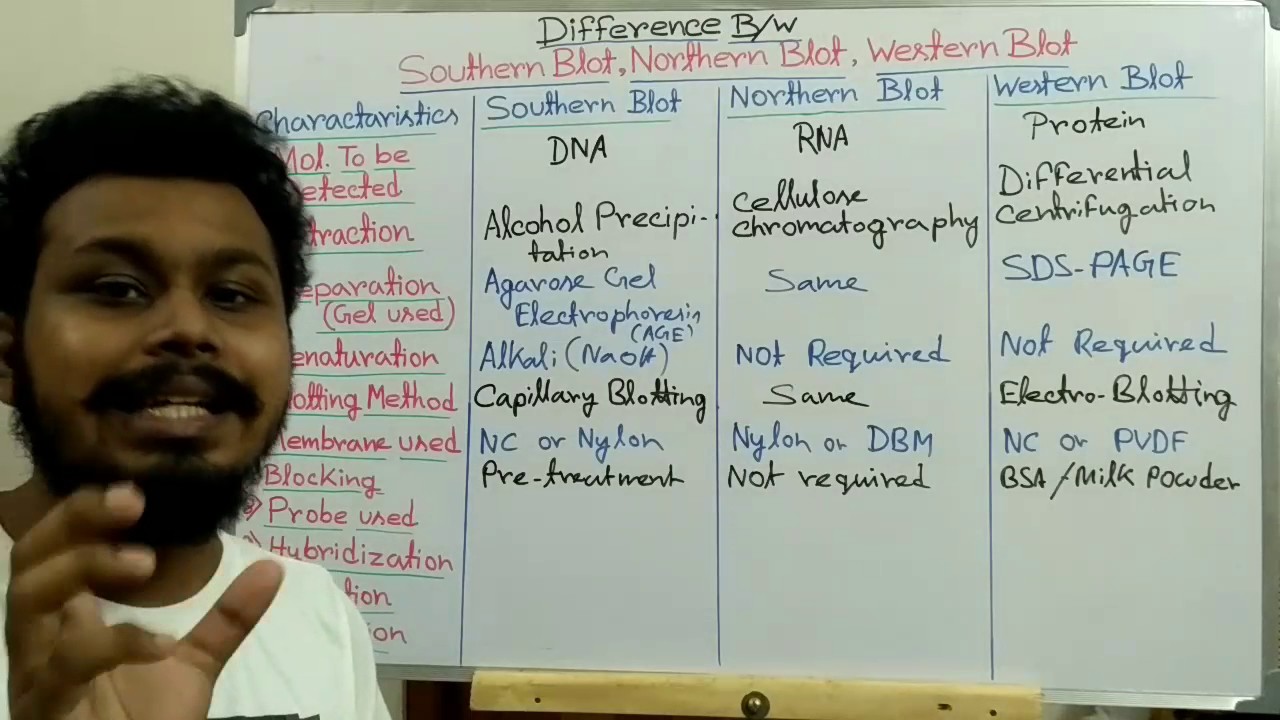 Difference B/w
Southern Blot, Northern Blot, Western Blot
Charactaristics Southern Blot Northern Blot Western Blot
Mol. To be
etected
DNA RNA Protein
traction
Alcohol Precipi-
tation
Cellulose
chromatography
Differential
Centrifugation
eparation
(Gel used)
Agarose Gel
Electrophoresis
(AGE)
Same SDS-PAGE
enaturation Alkali (NaOH) Not Required Not Required
lotting Method Capillary Blotting Same Electro-Blotting
Membrane used NC or Nylon Nylon or DBM NC or PVDF
Blocking Pre-treatment Not required BSA/Milk Powder
Probe used
Hybridization
tion
on